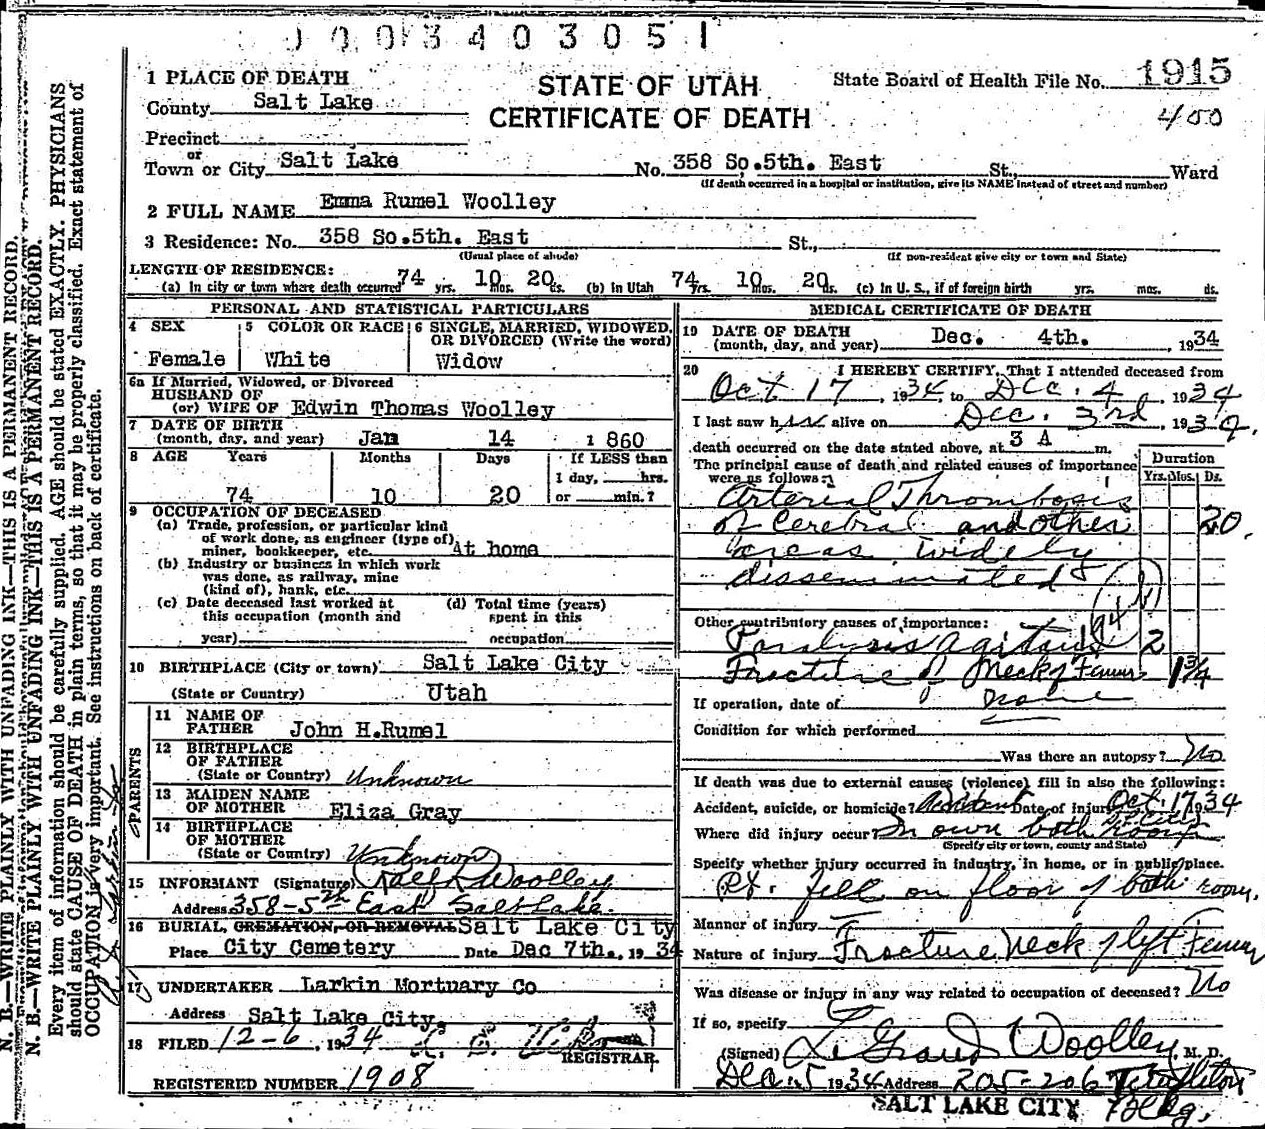 0003403051
1 PLACE OF DEATH
STATE OF UTAH
CERTIFICATE OF DEATH
State Board of Health File No. 1915
400
County Salt Lake
Precinct
or
Town or City Salt Lake No. 358 So.5th. East St., Ward
(If death occurred in a hospital or institution, give its NAME instead of street and number)
2 FULL NAME Emma Rumel Woolley
3 Residence: No. 358 So.5th. East St.,
(Usual place of abode) (If non-resident give city or town and State)
LENGTH OF RESIDENCE:
(a) In city or town where death occurred 74 yrs. 10 mos. 20 ds. (b) in Utah 74 yrs. 10 mos. 20 ds. (c) In U. S., if of foreign birth yrs. mos. ds.
PERSONAL AND STATISTICAL PARTICULARS
4 SEX Female
5 COLOR OR RACE White
6 SINGLE, MARRIED, WIDOWED, OR DIVORCED (Write the word) Widow
6a If Married, Widowed, or Divorced
HUSBAND OF
(or) WIFE OF Edwin Thomas Woolley
7 DATE OF BIRTH
(month, day, and year) Jan 14 1860
8 AGE Years Months Days If LESS than
1 day, hrs.
74 10 20 or min.?
9 OCCUPATION OF DECEASED
(a) Trade, profession, or particular kind
of work done, as engineer (type of)
miner, bookkeeper, etc. At home
(b) Industry or business in which work
was done, as railway, mine
(kind of), bank, etc.
(c) Date deceased last worked at
this occupation (month and
year)
(d) Total time (years)
spent in this
occupation
10 BIRTHPLACE (City or town) Salt Lake City
(State or Country) Utah
PARENTS
11 NAME OF
FATHER John H.Rumel
12 BIRTHPLACE
OF FATHER
(State or Country) Unknown
13 MAIDEN NAME
OF MOTHER Eliza Gray
14 BIRTHPLACE
OF MOTHER
(State or Country) Unknown
15 INFORMANT (Signature) Woolley
Address 358-5th East Salt Lake.
16 BURIAL, CREMATION, OR REMOVAL Salt Lake City
Place City Cemetery Date Dec 7th., 1934
17 UNDERTAKER Larkin Mortuary Co
Address Salt Lake City.
18 FILED 12-6, 1934
REGISTRAR.
REGISTERED NUMBER 1908
MEDICAL CERTIFICATE OF DEATH
19 DATE OF DEATH
(month, day, and year) Dec. 4th. , 1934
20 I HEREBY CERTIFY, That I attended deceased from
Oct 17, 1934, to Dec. 4, 1934
I last saw her alive on Dec. 3rd, 1934,
death occurred on the date stated above, at 3 A m.
The principal cause of death and related causes of importance
were as follows:
Duration
Yrs. Mos. Ds.
Arterial Thrombosis
of Cerebral and other 20.
areas widely
disseminated
Other contributory causes of importance:
Paralysis agitans 2
Fracture of Neck of Femur 1 3/4
If operation, date of none
Condition for which performed
Was there an autopsy? No
If death was due to external causes (violence) fill in also the following:
Accident, suicide, or homicide? Accident Date of injury Oct. 17 1934
Where did injury occur? In own bath room
(Specify city or town, county and State)
Specify whether injury occurred in industry, in home, or in public place.
Pt. fell on floor of bath room.
Manner of injury
Nature of injury Fracture Neck of left Femur
Was disease or injury in any way related to occupation of deceased? No
If so, specify
(Signed) LeGrand Woolley, M. D.
Dec. 5 1934 Address 205-206 Templeton
SALT LAKE CITY Bldg.
N. B.—WRITE PLAINLY WITH UNFADING INK—THIS IS A PERMANENT RECORD.
N. B.—WRITE PLAINLY WITH UNFADING INK—THIS IS A PERMANENT RECORD.
Every item of information should be carefully supplied. AGE should be stated EXACTLY. PHYSICIANS
should state CAUSE OF DEATH in plain terms, so that it may be properly classified. Exact statement of
OCCUPATION is very important. See instructions on back of certificate.